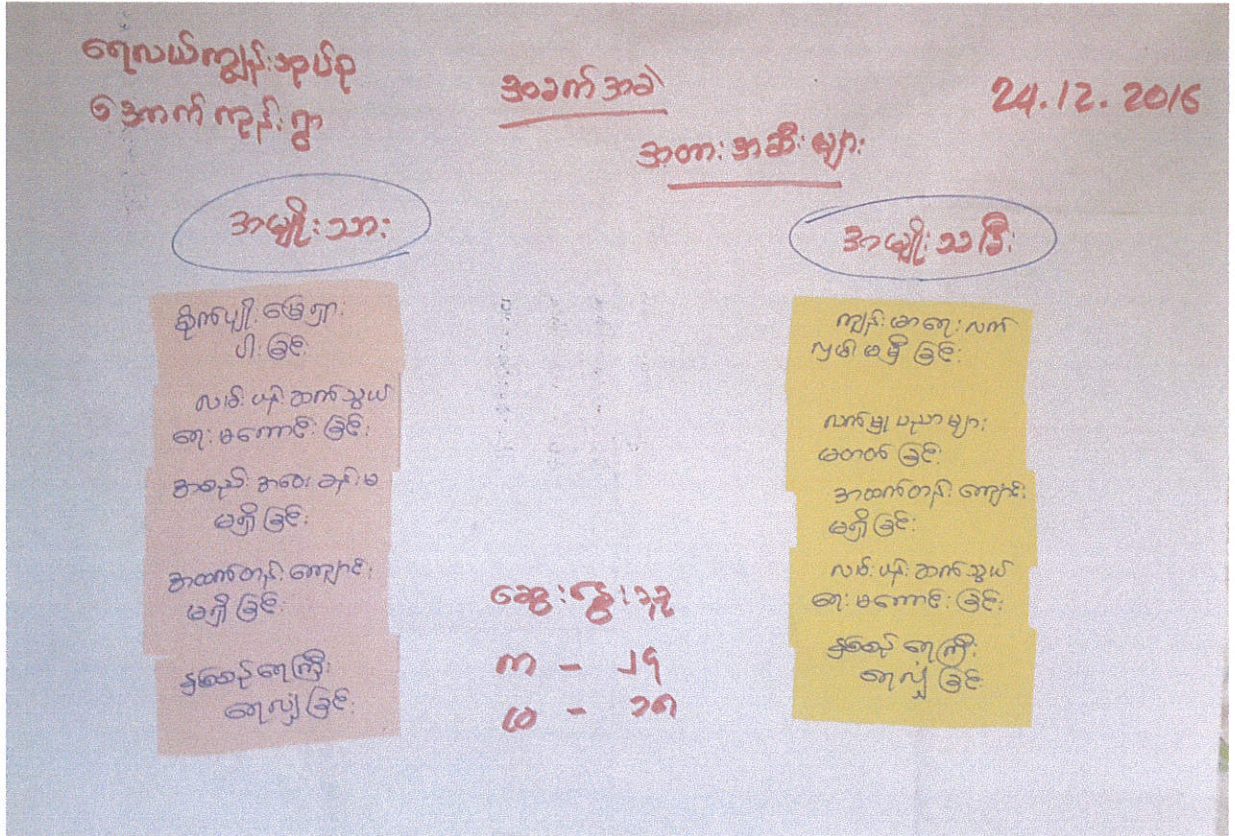 ရေလယ်ကျွန်းအုပ်စု
အောက်ကုန်းရွာ
အခက်အခဲ
24.12.2016
အတားအဆီးများ
အမျိုးသား
စိုက်ပျိုးမြေရှား
ပါးခြင်း
လမ်းပန်းဆက်သွယ်
ရေးမကောင်းခြင်း
အစည်းအဝေးခန်းမ
မရှိခြင်း
အထက်တန်းကျောင်း
မရှိခြင်း
နှစ်စဉ်ရေကြီး
ရေလျှံခြင်း
ဆွေးနွေးသူ
က - ၂၄
မ - ၁၈
အမျိုးသမီး
ကျန်းမာရေးလက်
လှမ်းမမှီခြင်း
လက်မှုပညာများ
မတတ်ခြင်း
အထက်တန်းကျောင်း
မရှိခြင်း
လမ်းပန်းဆက်သွယ်
ရေးမကောင်းခြင်း
နှစ်စဉ်ရေကြီး
ရေလျှံခြင်း